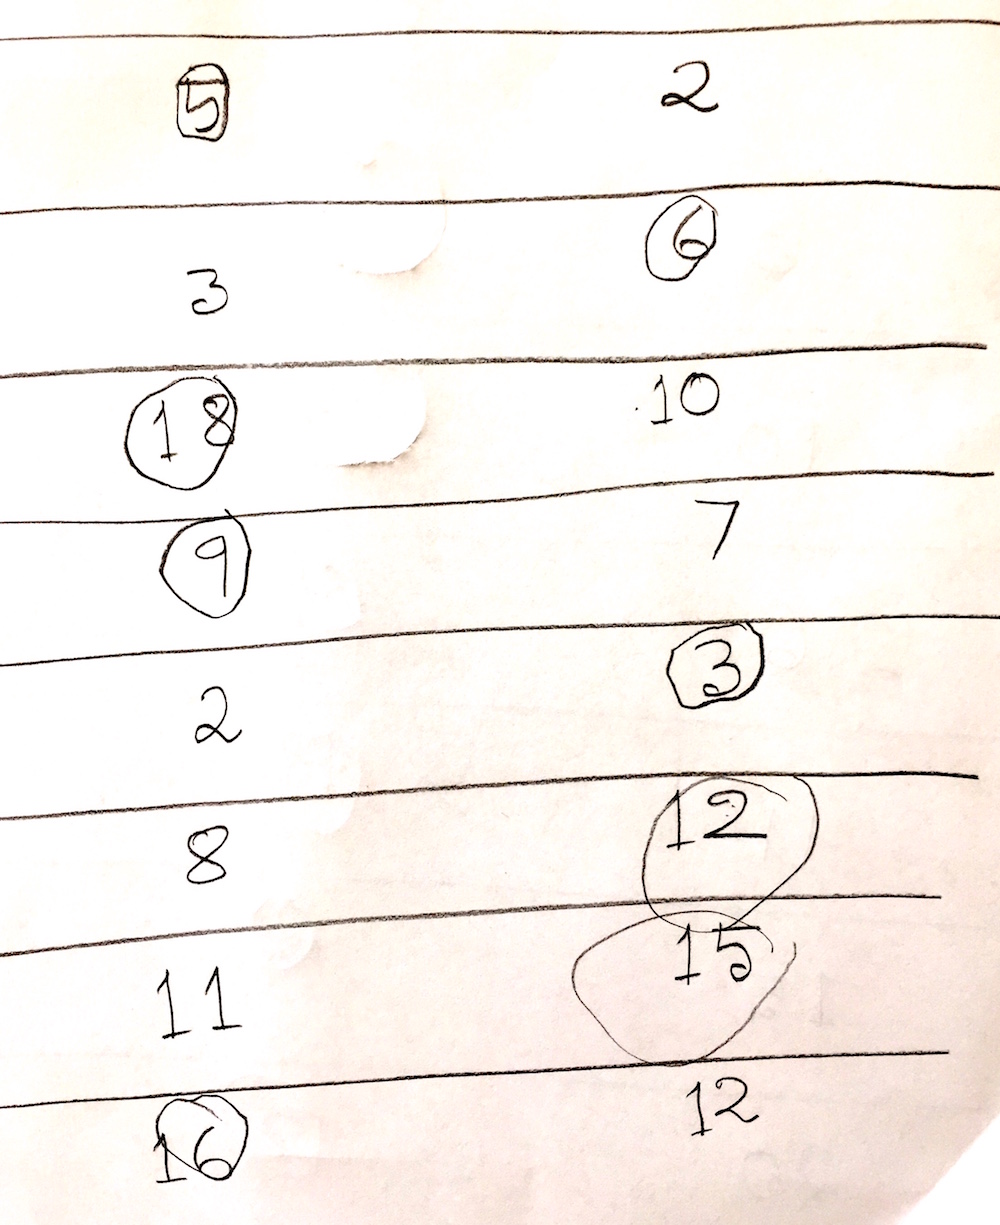 5 2
3 6
18 10
9 7
2 3
8 12
11 15
16 12